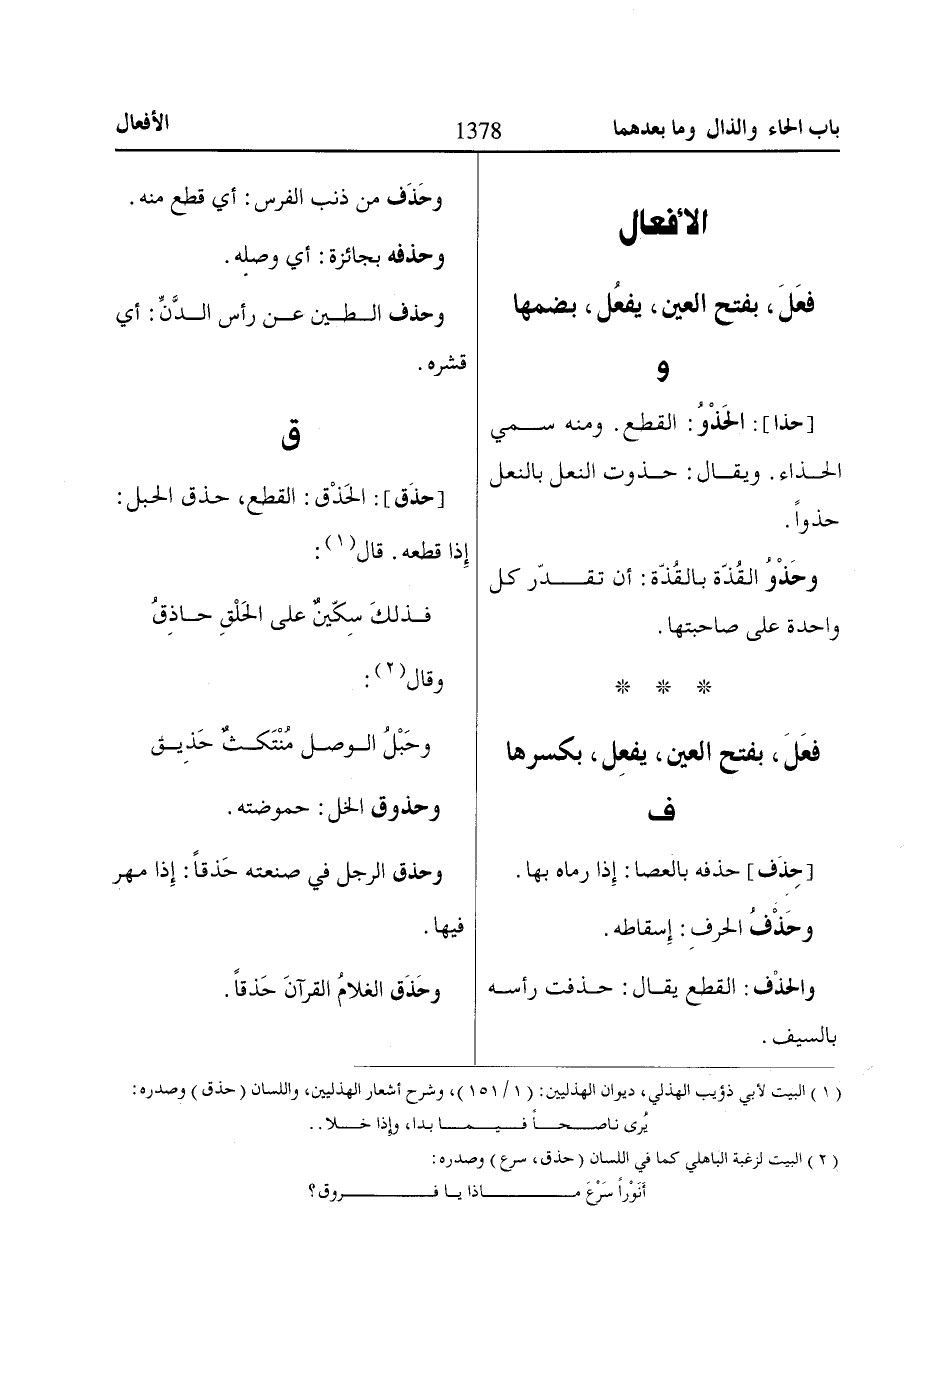 باب الحاء والذال وما بعدهما
1378
الأفعال
الأفعال
فعَلَ، بفتح العين، يفعُل، بضمها
و
[حذا]: الحَذْوُ: القطع. ومنه سمي
الحذاء. ويقال: حذوت النعل بالنعل
حذواً.
وحَذْوُ القُذّة بالقُذّة: أن تقدّر كل
واحدة على صاحبتها.
* * *
فعَلَ، بفتح العين، يفعِل، بكسرها
ف
[حذَف] حذفه بالعصا: إذا رماه بها.
وحَذْفُ الحرف: إسقاطه.
والحذْف: القطع يقال: حذفت رأسه
بالسيف.
وحَذَف من ذنب الفرس: أي قطع منه.
وحذفه بجائزة: أي وصله.
وحذف الطين عن رأس الدَّنِّ: أي
قشره.
ق
[حذَق]: الحَذْق: القطع، حذق الحبل:
إذا قطعه. قال(١):
فذلكَ سكّينٌ على الحَلْقِ حاذِقُ
وقال(٢):
وحَبْلُ الوصلِ مُنْتَكثٌ حَذيق
وحذوق الخل: حموضته.
وحذق الرجل في صنعته حَذقاً: إذا مهر
فيها.
وحَذَق الغلامُ القرآنَ حَذقاً.
(١) البيت لأبي ذؤيب الهذلي، ديوان الهذليين: (١/١٥١)، وشرح أشعار الهذليين، واللسان (حذق) وصدره:
يُرى ناصحاً فيما بدا، وإذا خلا..
(٢) البيت لزغبة الباهلي كما في اللسان (حذق، سرع) وصدره:
أنَوْراً سَرْعَ ماذا يا فروق؟